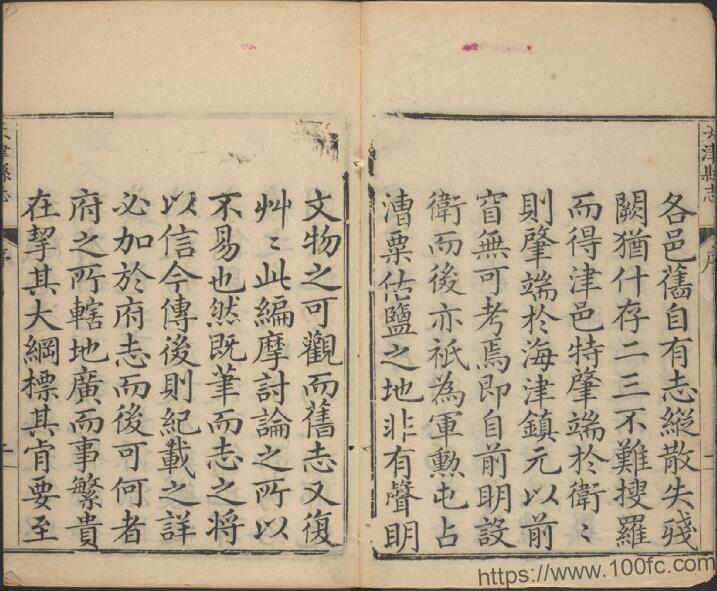 各邑舊自有志縱散失殘
闕猶什存二三不難搜羅
而得津邑特肇端於衛〻
則肇端於海津鎮元以前
窅無可考焉即自前明設
衛而後亦祇為軍勲屯占
漕粟佔鹽之地非有聲明
文物之可觀而舊志又復
艸〻此編摩討論之所以
不易也然既筆而志之將
以信今傳後則紀載之詳
必加於府志而後可何者
府之所轄地廣而事繁貴
在挈其大綱標其肯要至
天津縣志
序
天津縣志
序
https://www.100fc.com